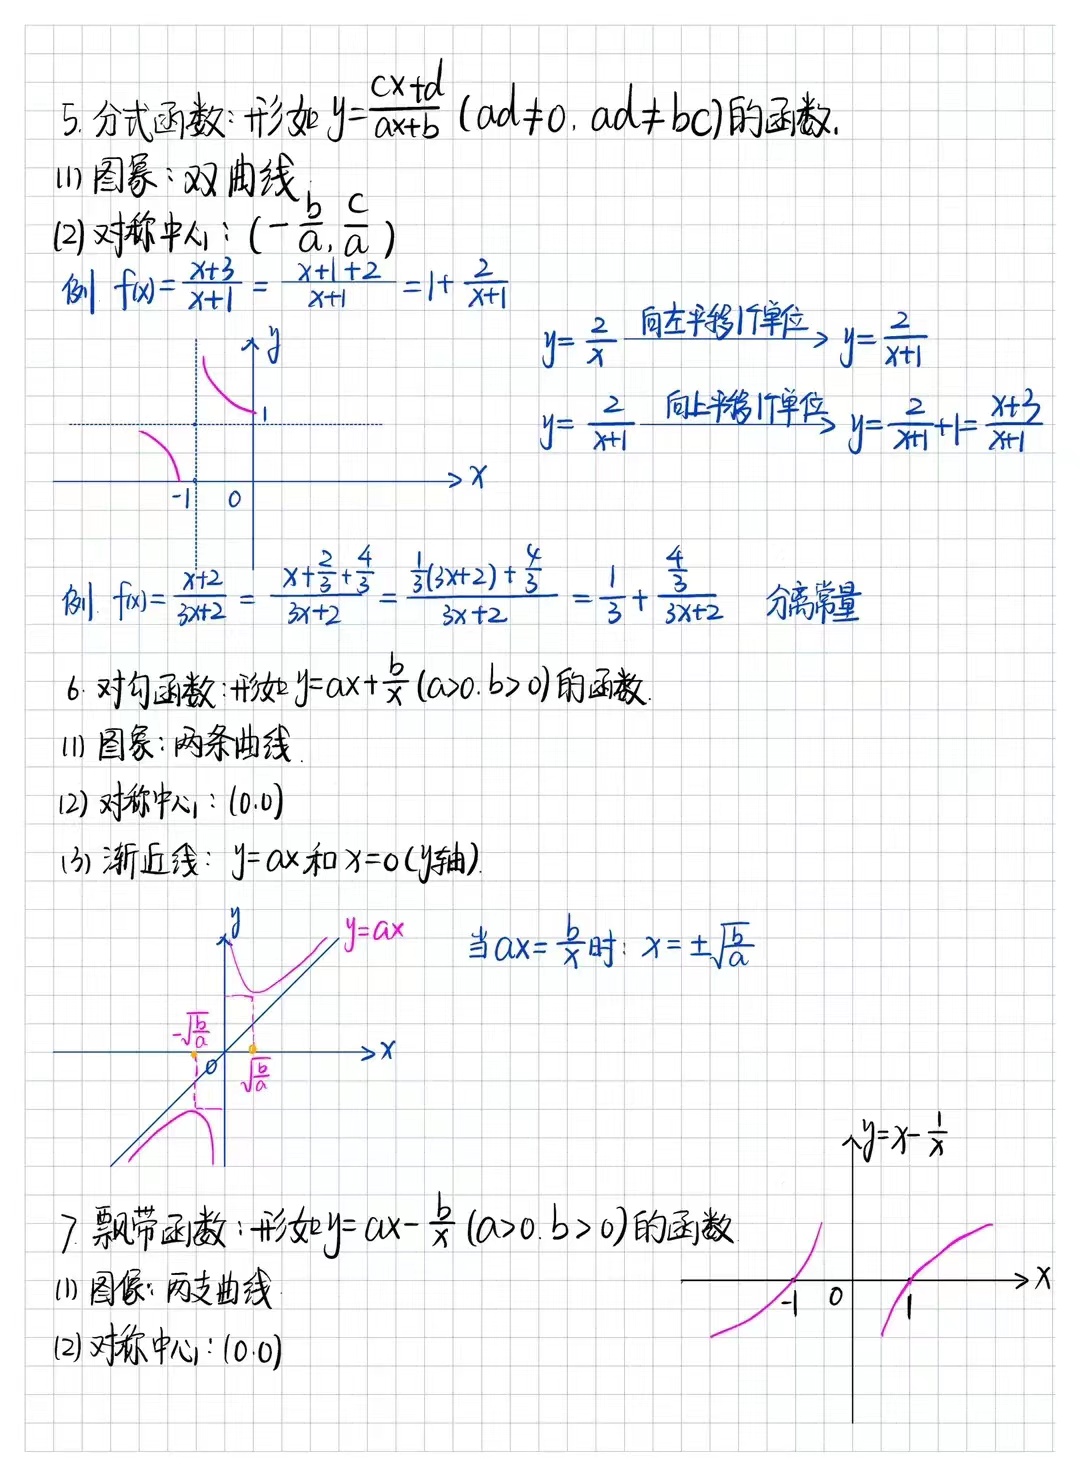 5. 分式函数: 形如 y=\frac{cx+d}{ax+b} (ad≠0, ad≠bc)的函数.
(1) 图象: 双曲线.
(2) 对称中心: (-\frac{b}{a}, \frac{c}{a})
例 f(x)=\frac{x+3}{x+1} = \frac{x+1+2}{x+1} =1+\frac{2}{x+1}
y=\frac{2}{x} 向左平移1个单位 y=\frac{2}{x+1}
y=\frac{2}{x+1} 向上平移1个单位 y=\frac{2}{x+1}+1=\frac{x+3}{x+1}
y
1
-1 0 x
例. f(x)=\frac{x+2}{3x+2} = \frac{x+\frac{2}{3}+\frac{4}{3}}{3x+2} = \frac{\frac{1}{3}(3x+2)+\frac{4}{3}}{3x+2} = \frac{1}{3}+\frac{\frac{4}{3}}{3x+2} 分离常量
6. 对勾函数: 形如 y=ax+\frac{b}{x} (a>0. b>0)的函数.
(1) 图象: 两条曲线.
(2) 对称中心: (0.0)
(3) 渐近线: y=ax 和 x=0(y轴).
y y=ax
当 ax=\frac{b}{x} 时: x=±\sqrt{\frac{b}{a}}
-\sqrt{\frac{b}{a}}
0 x
\sqrt{\frac{b}{a}}
7. 飘带函数: 形如 y=ax-\frac{b}{x} (a>0. b>0)的函数
(1) 图像: 两支曲线.
(2) 对称中心: (0.0)
y=x-\frac{1}{x}
-1 0 1 x